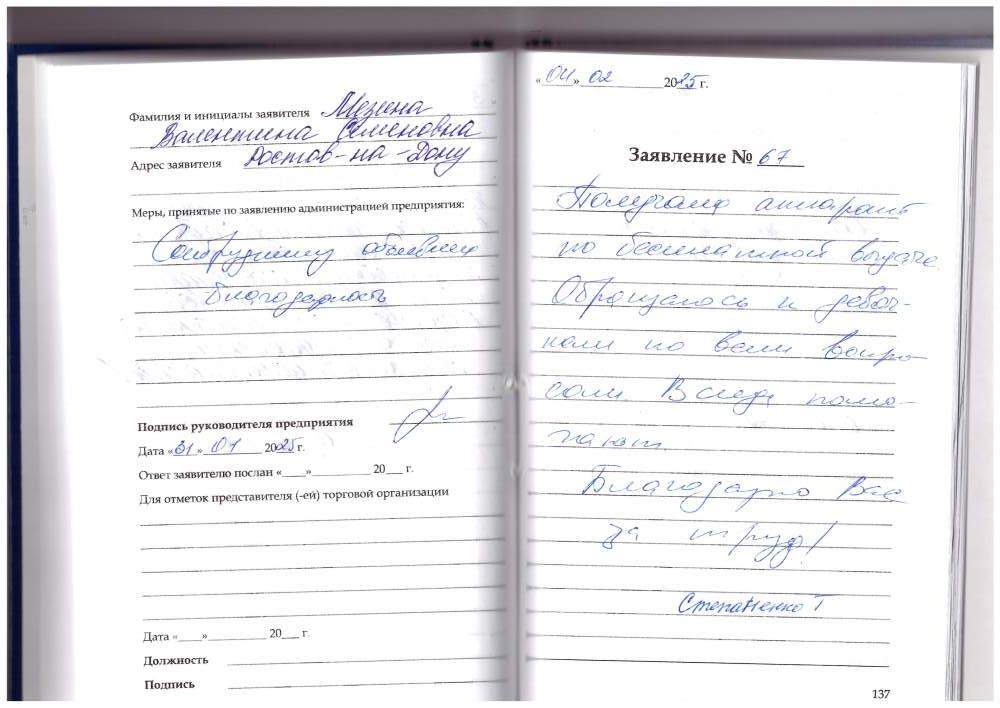 Фамилия и инициалы заявителя Мезина
Валентина Семеновна
Адрес заявителя Ростов-на-Дону
Меры, принятые по заявлению администрацией предприятия:
Сотруднику объявлена
благодарность
Подпись руководителя предприятия
Дата «31» 01 2025 г.
Ответ заявителю послан «____» __________ 20___ г.
Для отметок представителя (-ей) торговой организации
Дата «____» __________ 20___ г.
Должность
Подпись
«04» 02 2025 г.
Заявление № 67
Получала аппарат
по бесплатной выдаче.
Обращалась к девоч-
кам по всем вопро-
сам. Всегда помо-
гают.
Благодарю Вас
за труд!
Степаненко Т
137